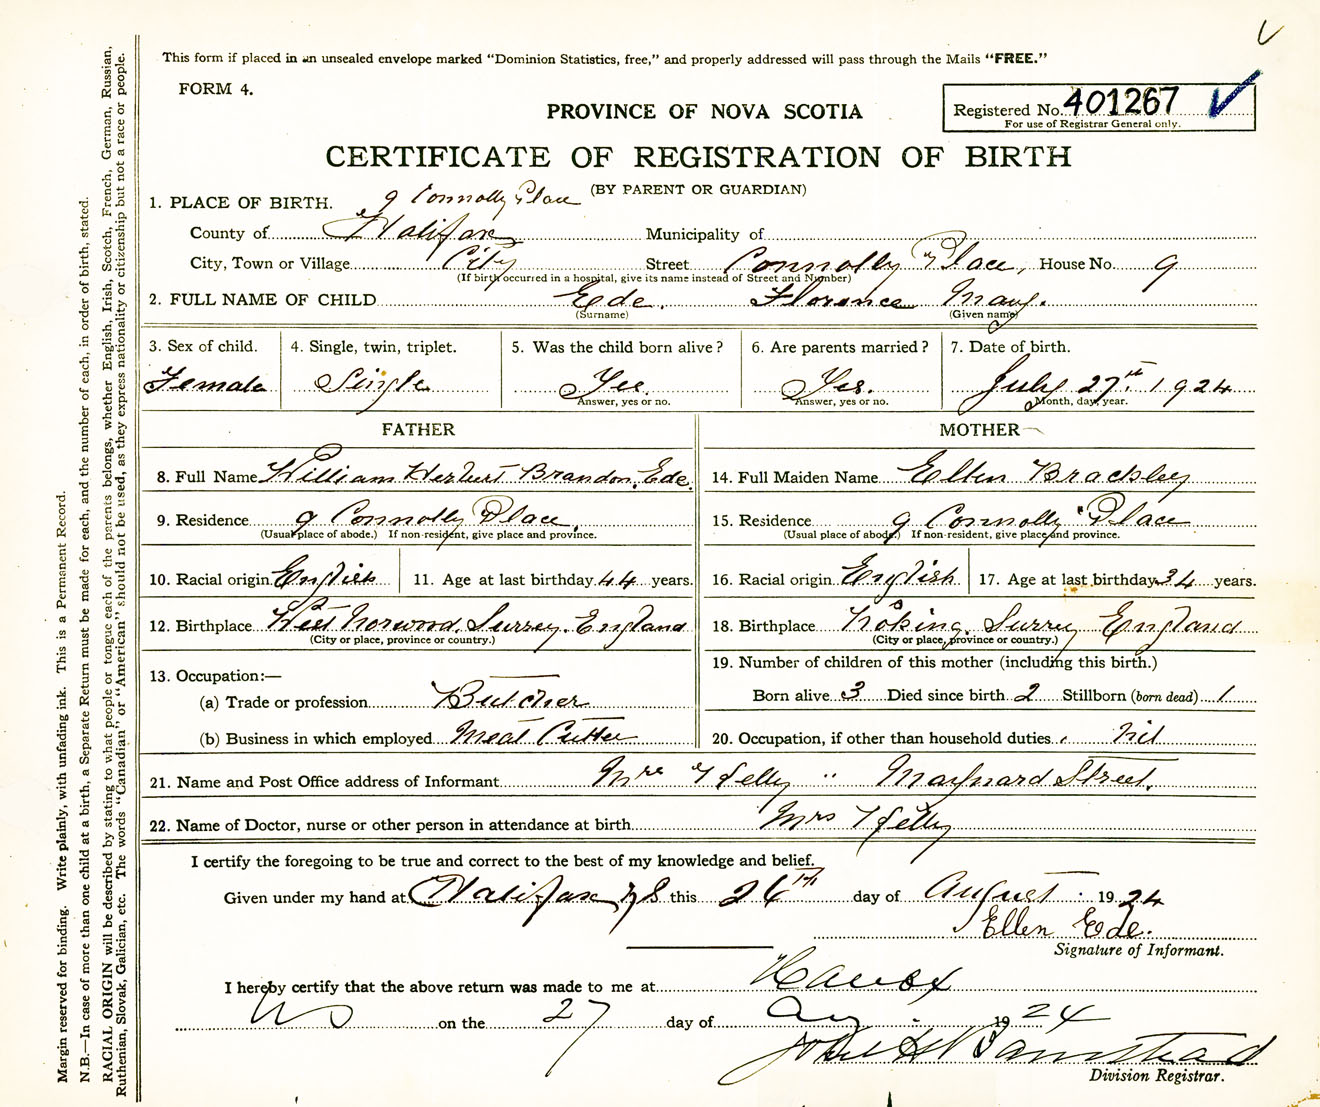 This form if placed in an unsealed envelope marked "Dominion Statistics, free," and properly addressed will pass through the Mails "FREE."
FORM 4.
PROVINCE OF NOVA SCOTIA
Registered No. 401267
For use of Registrar General only.
CERTIFICATE OF REGISTRATION OF BIRTH
(BY PARENT OR GUARDIAN)
1. PLACE OF BIRTH. 9 Connolly Place
County of Halifax Municipality of
City, Town or Village City Street Connolly Place, House No. 9
(If birth occurred in a hospital, give its name instead of Street and Number)
2. FULL NAME OF CHILD Ede. Florence May.
(Surname) (Given name)
3. Sex of child. 4. Single, twin, triplet. 5. Was the child born alive? 6. Are parents married? 7. Date of birth.
Female Single Yes. Yes. July 27th 1924
Answer, yes or no. Answer, yes or no. Month, day, year.
FATHER MOTHER
8. Full Name William Herbert Brandon Ede. 14. Full Maiden Name Ellen Brackley
9. Residence 9 Connolly Place. 15. Residence 9 Connolly Place
(Usual place of abode.) If non-resident, give place and province. (Usual place of abode.) If non-resident, give place and province.
10. Racial origin English 11. Age at last birthday 44 years. 16. Racial origin English 17. Age at last birthday 34 years.
12. Birthplace West Norwood, Surrey. England 18. Birthplace Woking, Surrey England
(City or place, province or country.) (City or place, province or country.)
13. Occupation:— 19. Number of children of this mother (including this birth.)
(a) Trade or profession Butcher Born alive 3 Died since birth 2 Stillborn (born dead) 1
(b) Business in which employed Meat Cutter 20. Occupation, if other than household duties nil
21. Name and Post Office address of Informant Mrs Kelly " Maynard Street.
22. Name of Doctor, nurse or other person in attendance at birth Mrs Kelly
I certify the foregoing to be true and correct to the best of my knowledge and belief.
Given under my hand at Halifax NS this 26TH day of August 1924
Ellen Ede.
Signature of Informant.
I hereby certify that the above return was made to me at Halifax
NS on the 27 day of Aug 1924
John
Division Registrar.
Margin reserved for binding. Write plainly, with unfading ink. This is a Permanent Record.
N.B.—In case of more than one child at a birth, a Separate Return must be made for each, and the number of each, in order of birth, stated.
RACIAL ORIGIN will be described by stating to what people or tongue each of the parents belongs, whether English, Irish, Scotch, French, German, Russian,
Ruthenian, Slovak, Galician, etc. The words "Canadian" or "American" should not be used, as they express nationality or citizenship but not a race or people.